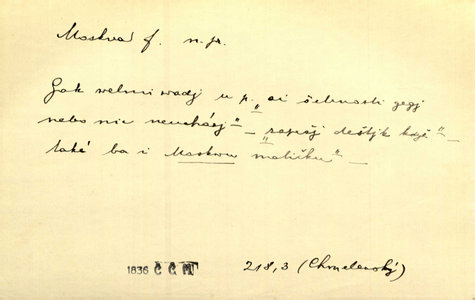 Moskva f. n. pr.
Gak velmi vadj u p. „ai šetrnosti gegj
nebo nic neucházj“ – „zapěj deštjk když“ –
také ba i Moskvu matičku“ –
1836 Č Č M 218,3 (Chmelenský)